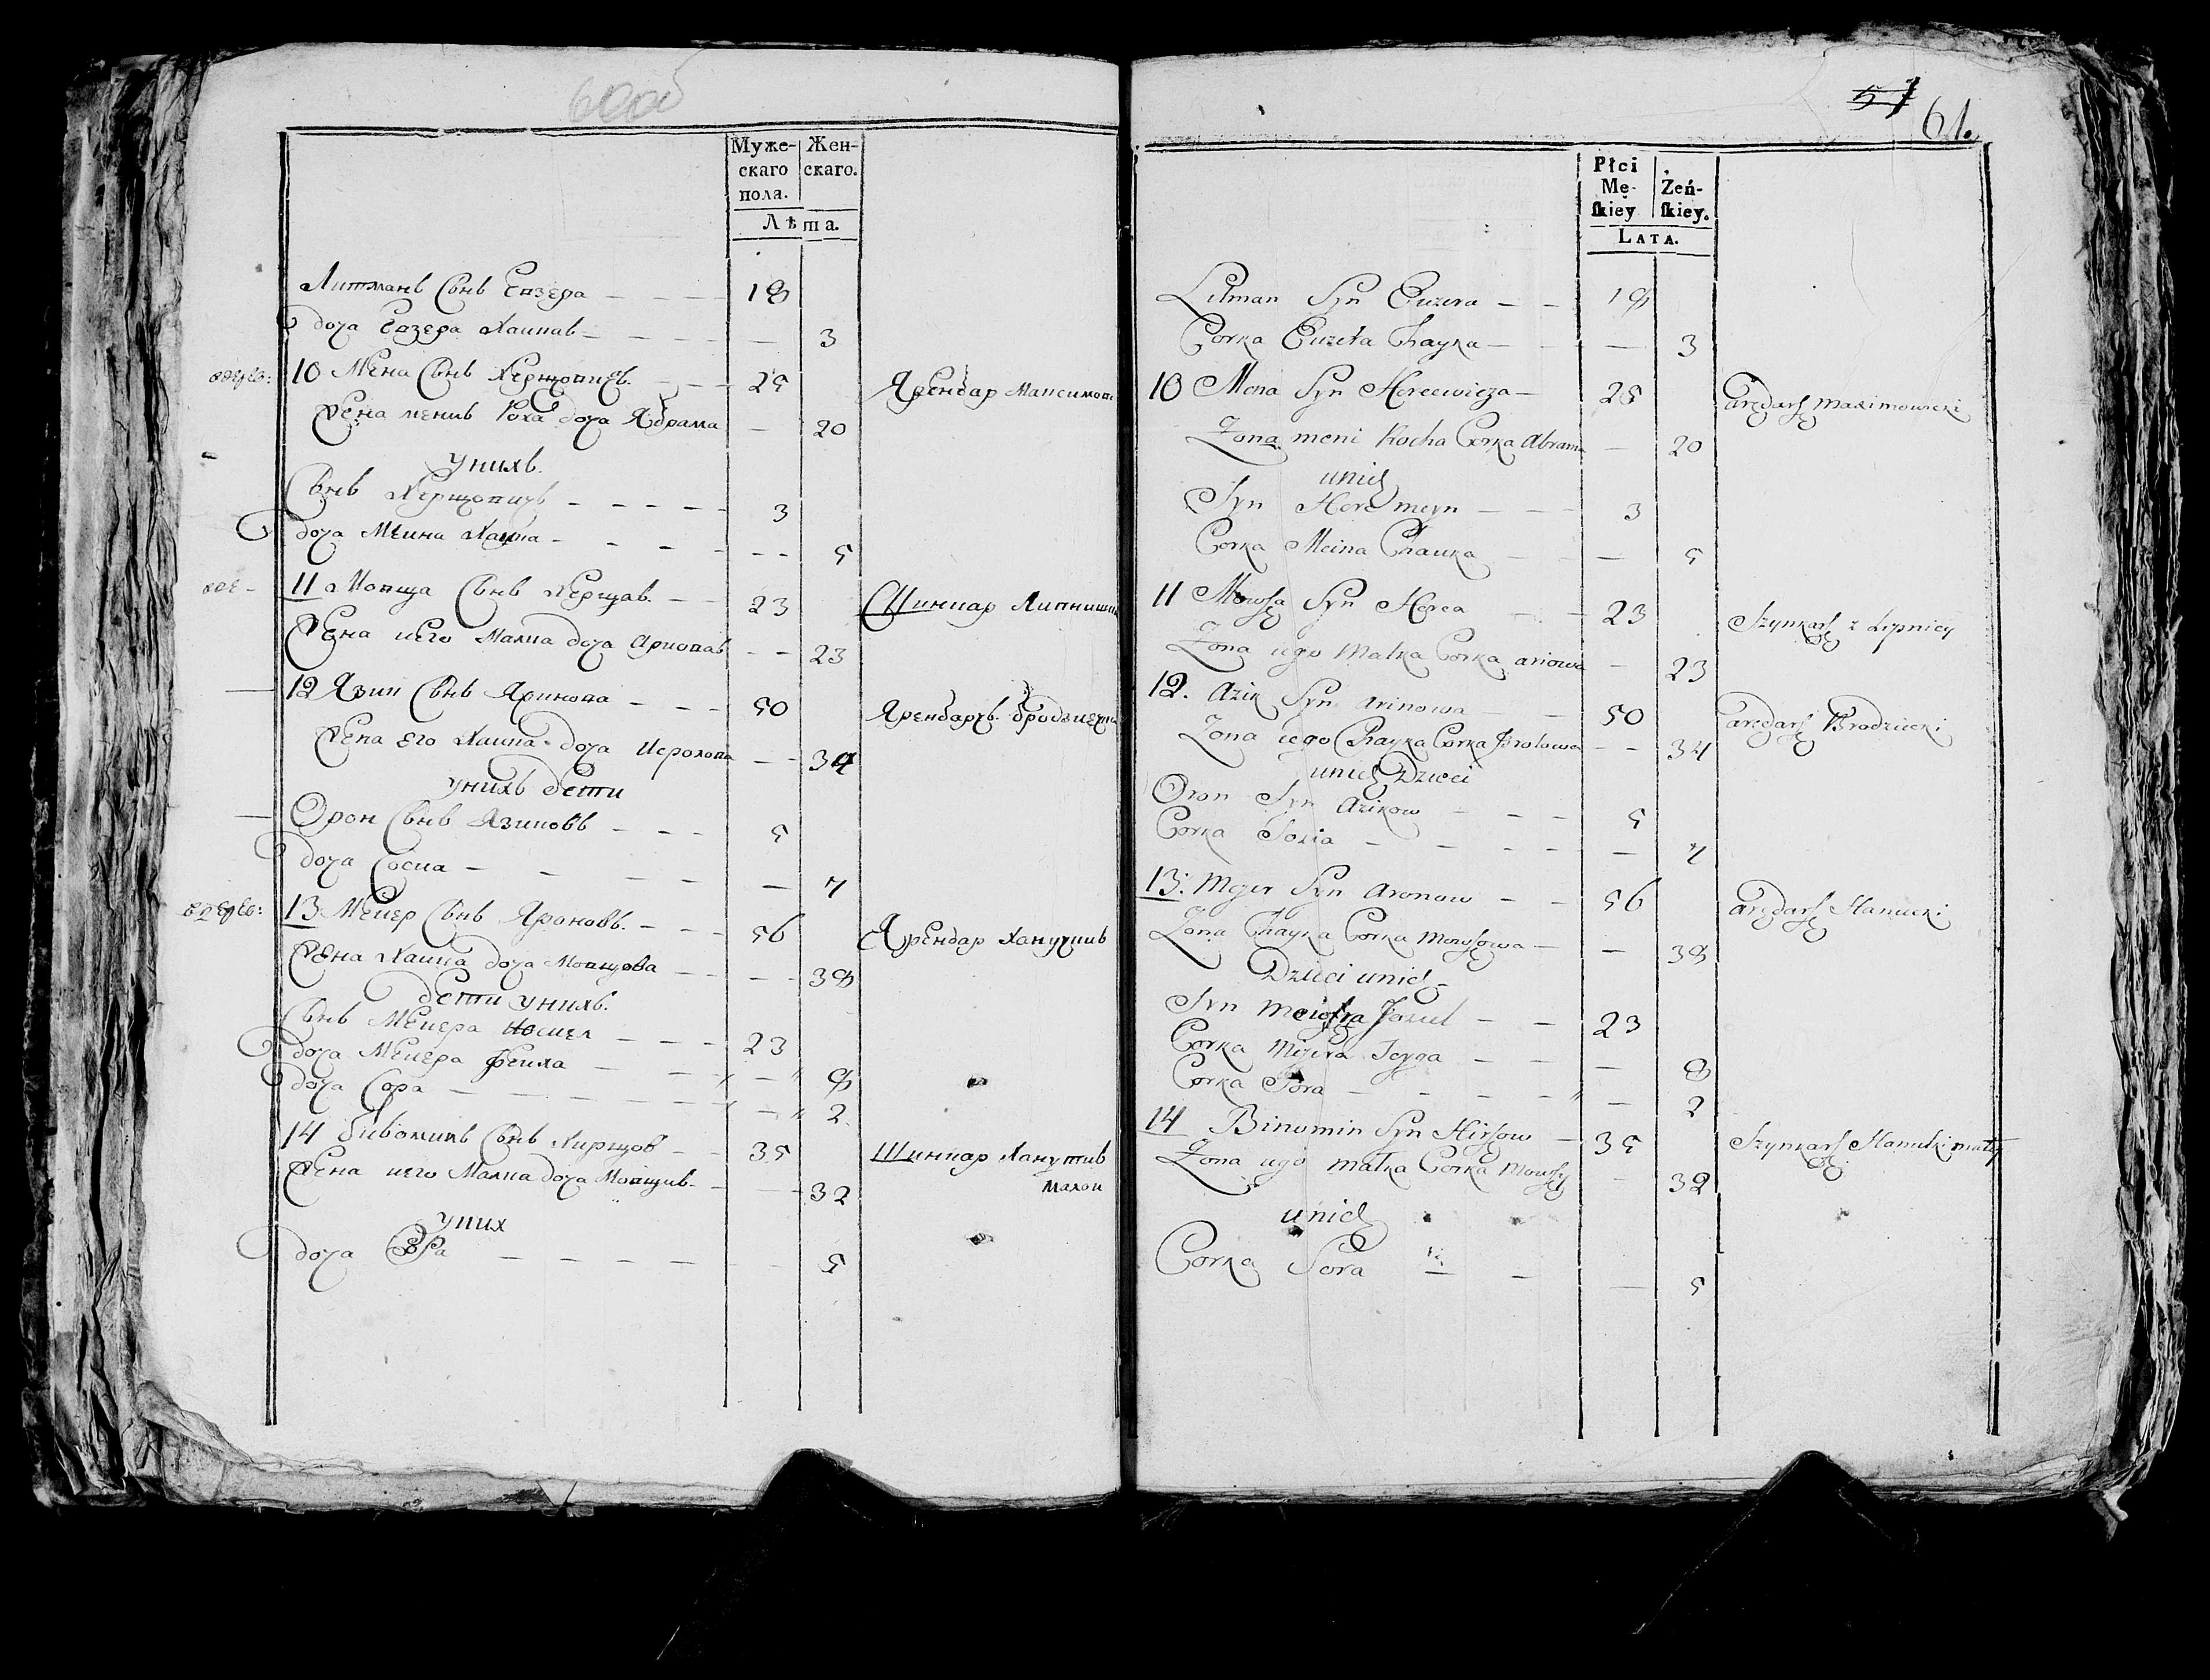 60об
Муже-
скаго
пола.
Жен-
скаго.
Лѣта.
Литманъ Сынъ Еизера — — — 18
доча Еизера Хаикав — — — — — 3
10 Мена Сынъ Херщовичъ. — — 25 Арендар Максимов
Жена менив Роха доча Абрама — 20
унихъ.
Сынъ Херщовичъ — — — — — 3
доча Меина Хаика — — — — — — 5
11 Мовща Сынъ Херщав. — — 23 Шинкар Липниш
Жена иего Малка доча Ариовав — — 23
12 Азик Сынъ Аринова — — — 50 Арендарчъ. бродзиецки
Жена Его Хаика доча Исролова — — 34
унихъ дети
Орон Сынъ Азиковъ — — — 5
доча Сосиа — — — — — 7
13 Меиер Сынъ Ароновъ. — — — 56 Арендар Ханучкив
Жена Хаика доча Мовщова — — — — 38
дети унихъ.
Сынъ Меиера Иосиел — — — 23
доча Меиера феиха — — — 8
доча Сора — — — — — — 2
14 Сынъ Хирщов — — 35 Шинкар Ханутив
Жена иего Малка доча Мовщив — — 32 Малои
уних
доча Сора — — — — — — 5
57 61.
Płci
Mę-
skiey
Żeń-
skiey.
LATA.
Litman Syn Euzera — — 18
Corka Euzera Chayka — — — 3
10 Mena Syn Hercewicza — 25 arędarz Maximowicki
Zona meni Rocha Corka Abrama — 20
unich
Syn Herc meyn — — — 3
Corka Meina Chauka — — — 5
11 Mowsza Syn Herca — — 23 Szynkarz z Lipnicy
Zona iego Malka Corka ariowa — 23
12. Azik Syn Arinowa — — 50 arędarz Brodziecki
Zona iego Chayka Corka Jsrolowa — — 34
unich Dzieci
Oron Syn Azikow — — — 5
Corka Sosia — — — — — 7
13. Mejer Syn Aronow — — 56 arędarz Hanucki
Zona Chayka Corka Mowszowa — — 38
Dzieci unich
Syn Joziel — — 23
Corka Meiera — — — 8
Corka Sora — — — — — 2
14 Binomin Syn Hirszow — 35 Szynkarz Hanuki mały
Zona iego Malka Corka Mowszy — 32
unich
Corka Sora — — — 5